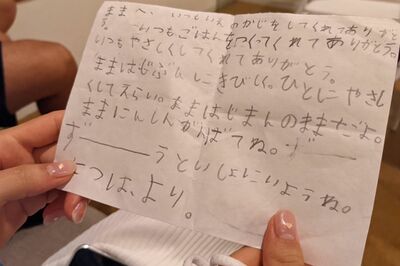 ままへ、いつもいえのかじをしてくれてありがと
う。いつもごはんをつくってくれてありがとう。
いつもやさしくしてくれてありがとう。
ままはじぶんにきびしく。ひとにやさし
くしてえらい。ままはじまんのままだよ。
ままにんしんがんばてね。ず——
ず———うといしょにいようね。
なつは、より。